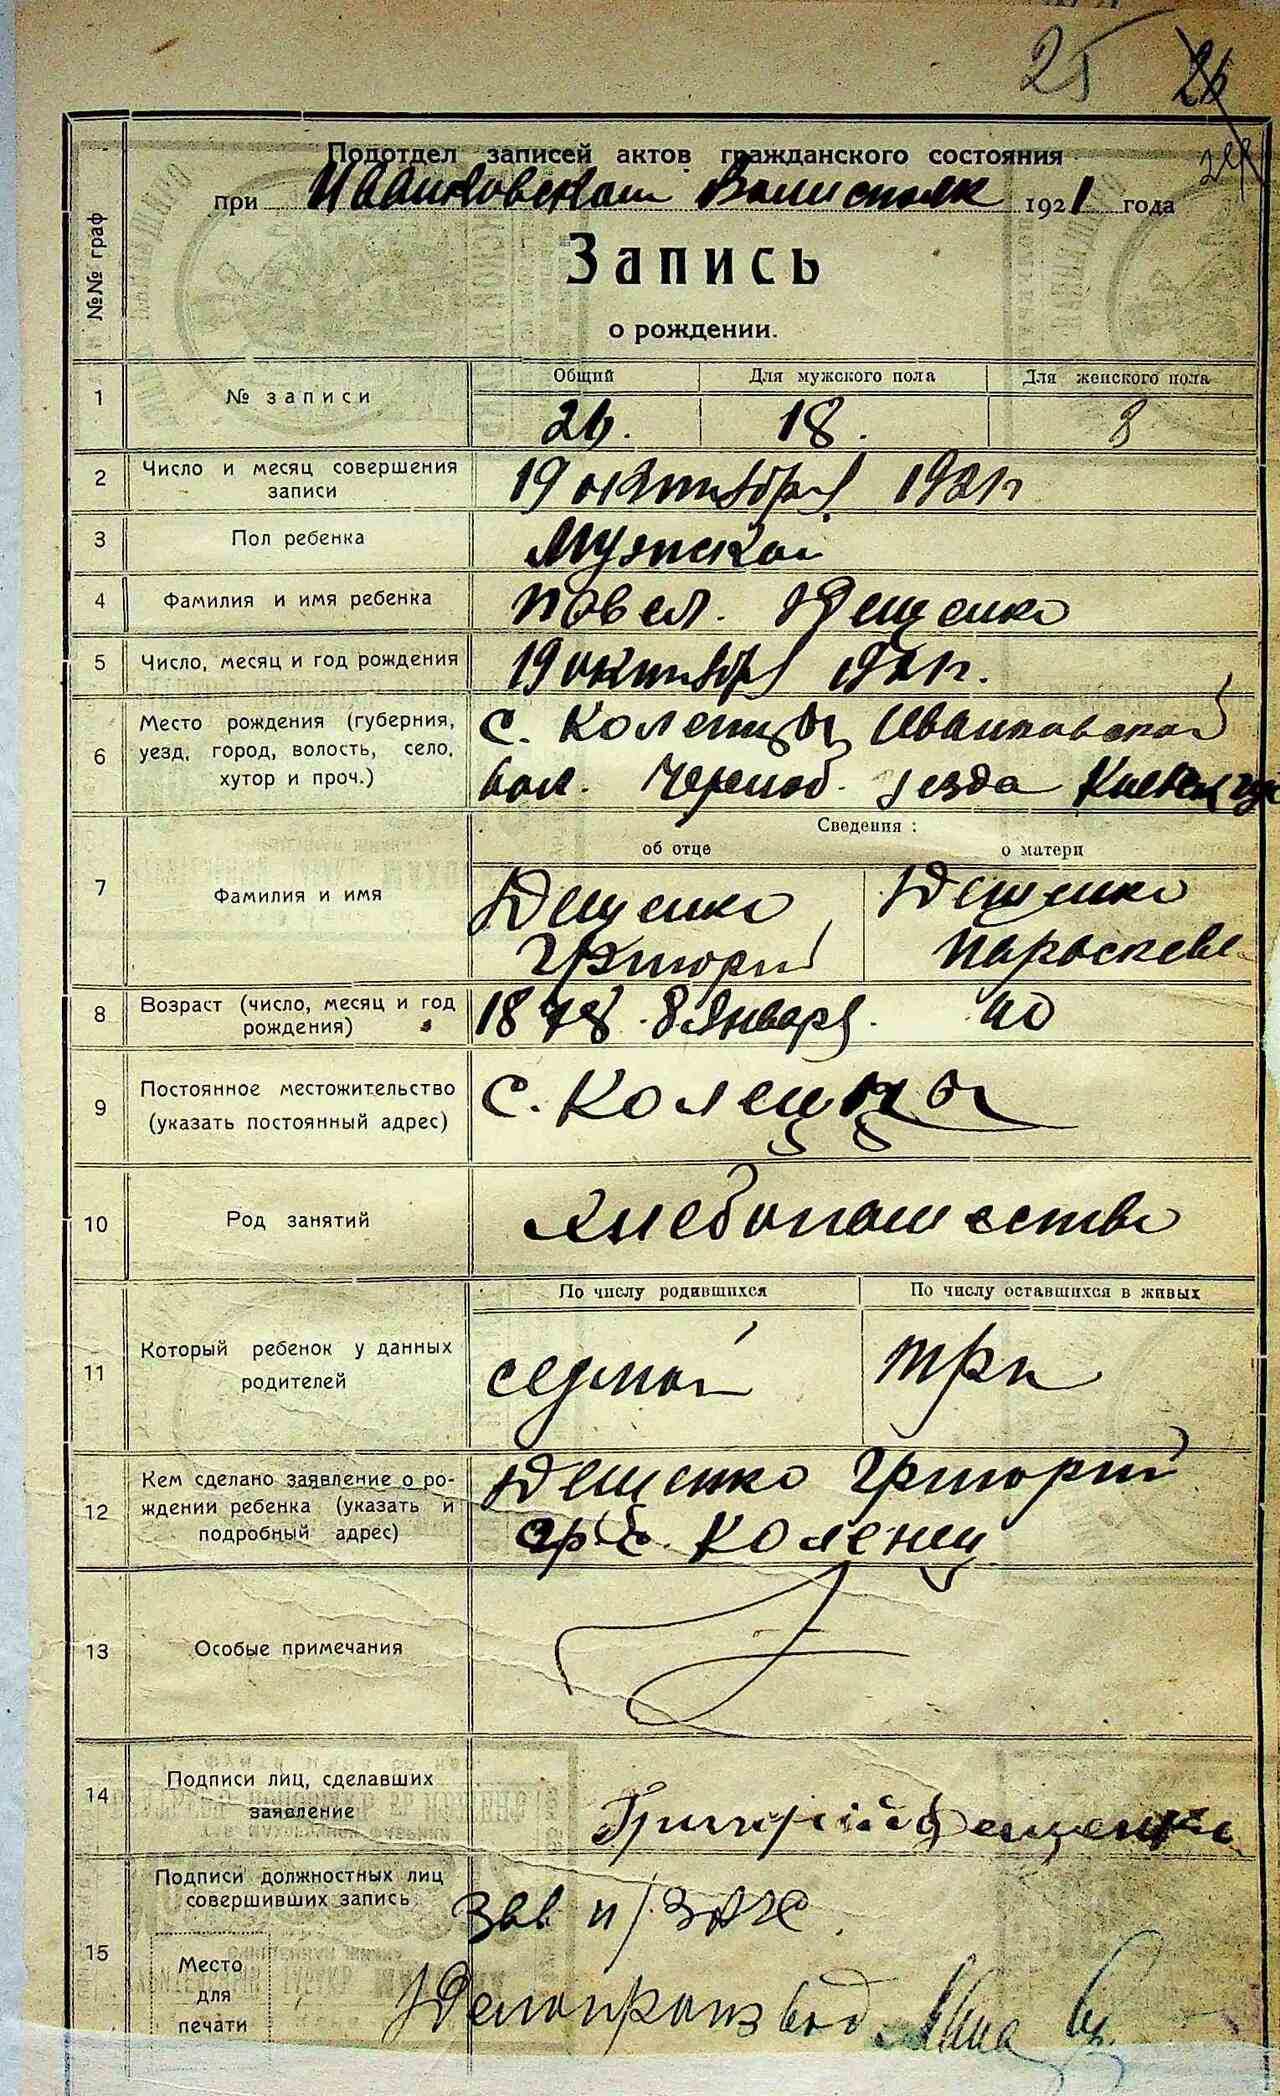 25 26
Подотдел записей актов гражданского состояния
при Иванковском Волисполк 1921 года
Запись
о рождении.
№№ граф
1 № записи
Общий Для мужского пола Для женского пола
26. 18. 8
2 Число и месяц совершения записи
19 октября 1921 г.
3 Пол ребенка
Мужской
4 Фамилия и имя ребенка
Повел. Дещенко
5 Число, месяц и год рождения
19 октября 1921 г.
6 Место рождения (губерния,
уезд, город, волость, село,
хутор и проч.)
с. Коленцы Иванковской
вол. Черноб. уезда Киевск губ
Сведения:
об отце о матери
7 Фамилия и имя
Дещенко Дещенко
Григорий Пароскева
8 Возраст (число, месяц и год
рождения)
1878. 8 января. 40
9 Постоянное местожительство
(указать постоянный адрес)
с. Коленцы
10 Род занятий
Хлебопашество
По числу родившихся По числу оставшихся в живых
11 Который ребенок у данных
родителей
седмой три
12 Кем сделано заявление о ро-
ждении ребенка (указать и
подробный адрес)
Дещенко Григорий
гр. с. Коленец
13 Особые примечания
14 Подписи лиц, сделавших
заявление
Григорій Дещенко
15 Подписи должностных лиц
совершивших запись
Зав. п/ЗАГС
Место
для
печати
Делопроизвод